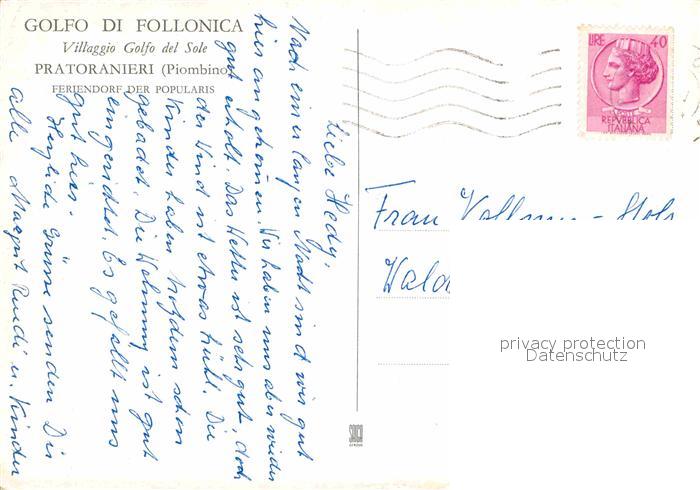 GOLFO DI FOLLONICA
Villaggio Golfo del Sole
PRATORANIERI (Piombino)
FERIENDORF DER POPULARIS
Liebe Hedy,
Nach einer langen Nacht sind wir gut
hier angekommen. Wir haben uns aber wieder
gut erholt. Das Wetter ist sehr gut, doch
der Wind ist etwas kühl. Die
Kinder haben trotzdem schon
gebadet. Die Wohnung ist gut
eingerichtet. Es gefällt uns
gut hier.
Herzliche Grüsse senden Dir
alle Margrit Ruedi u. Kinder
LIRE 40
REPVBBLICA
ITALIANA
Frau
Wald
privacy protection
Datenschutz